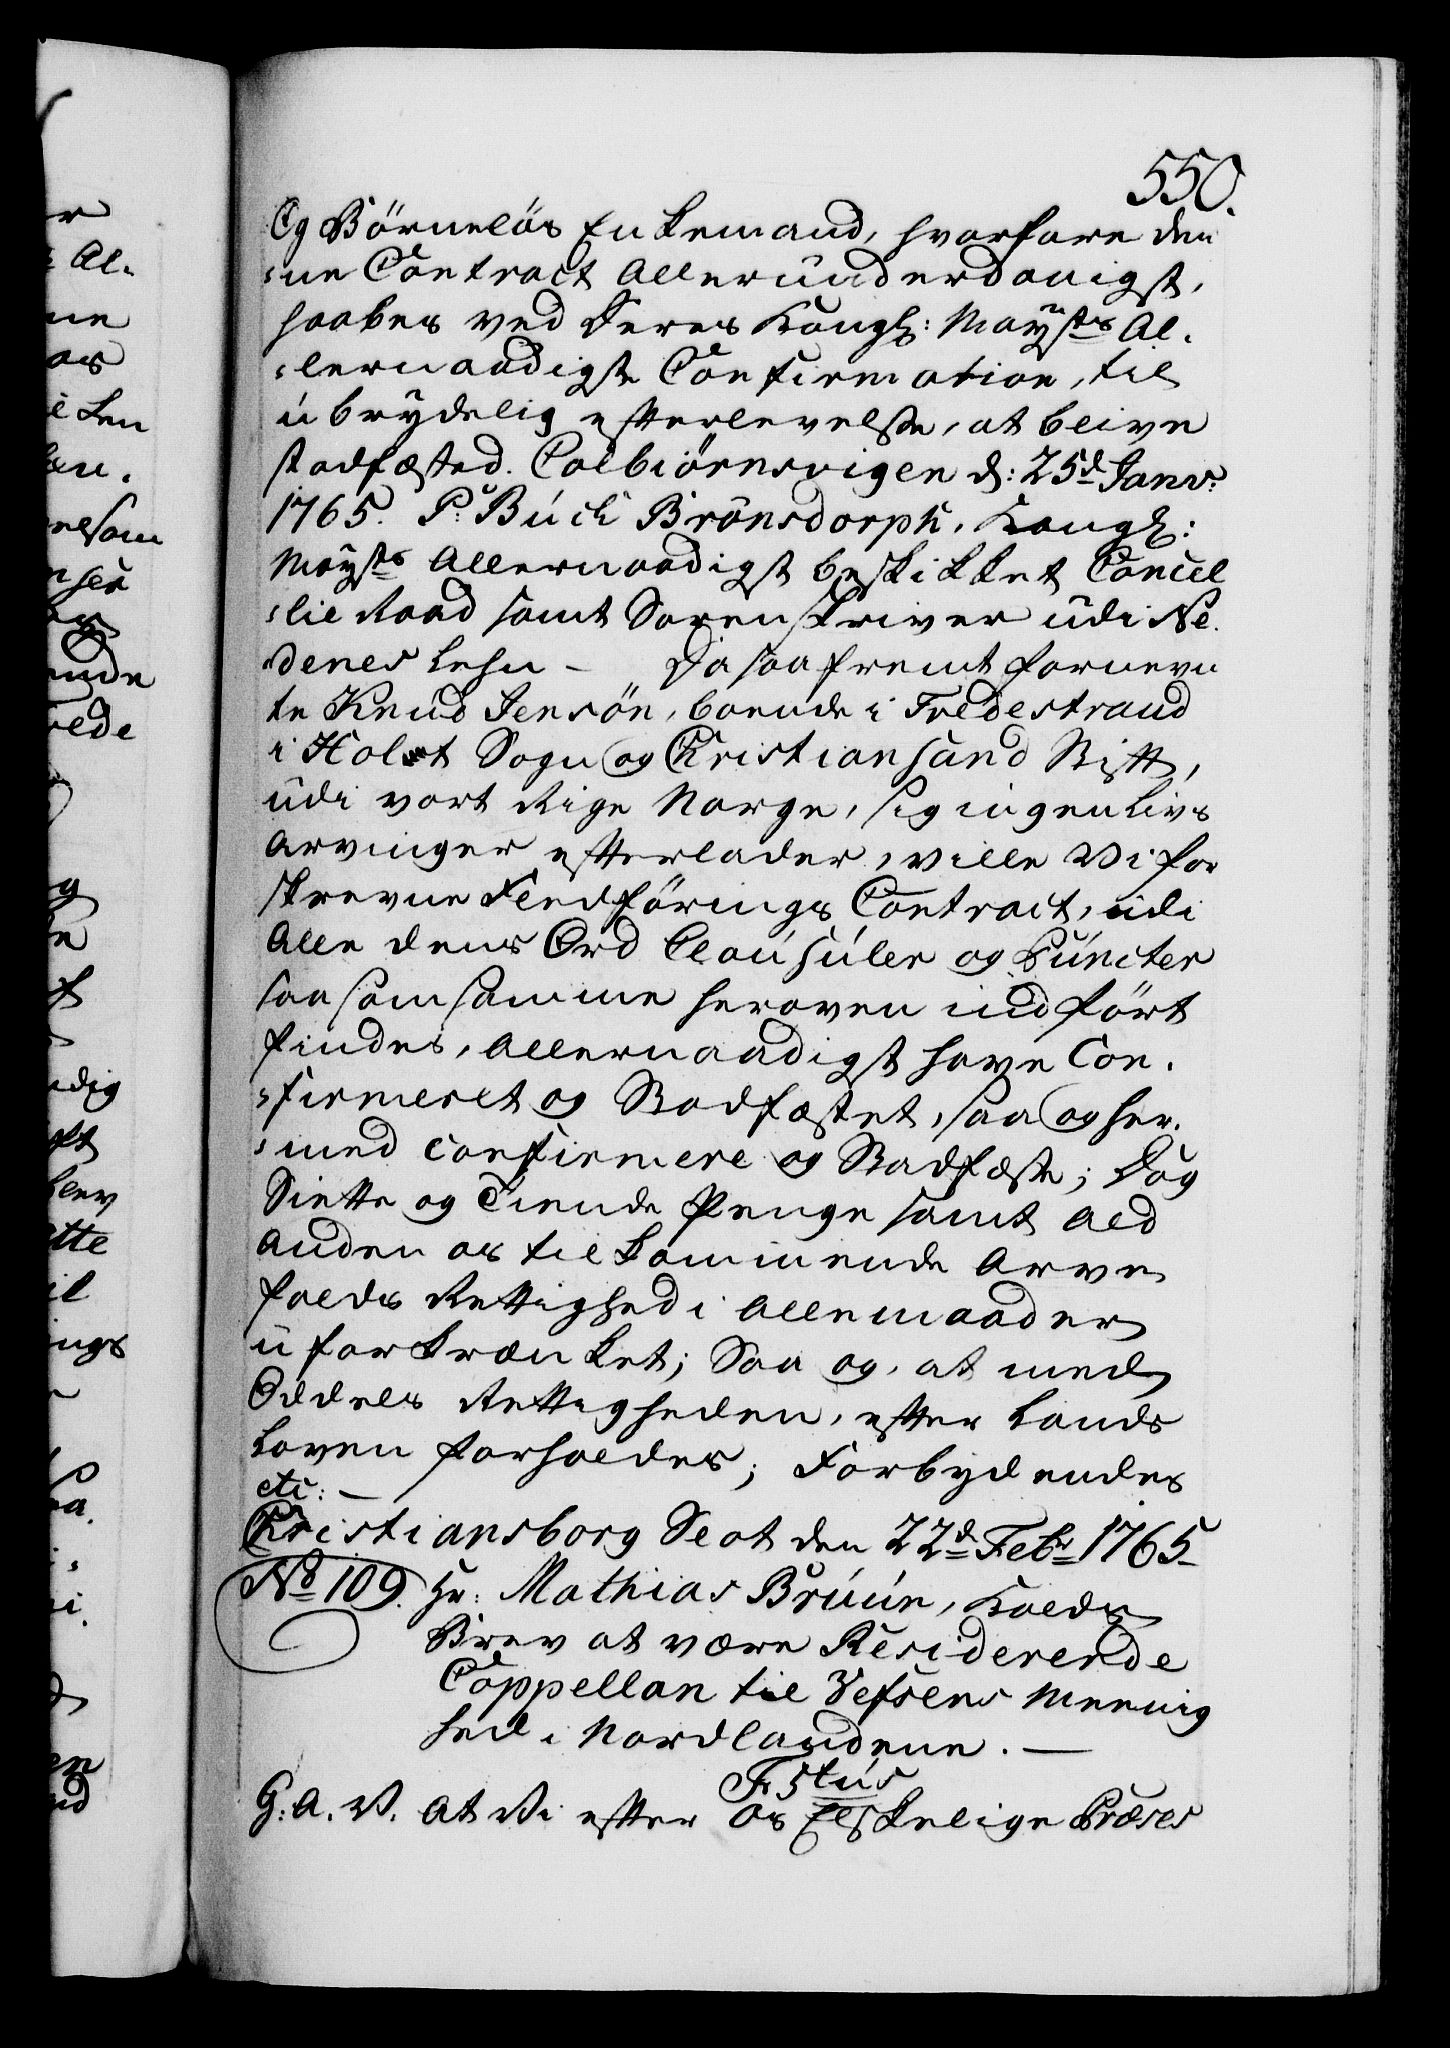 550.
Og Börnelös Enkemand, hvorfore den
:ne Contract allerunderdanigst,
haabes ved Deres Kongl: Mayts Al.
:lernaadigste Confirmation, til
ubrydelig efterlevelse, at blive
stadfæsted. Colbiörnsvigen d: 25d Janv:
1765. P: Buch Brönsdorph, Kongl:
Mayts Allernaadigst beskikket Cancel
:lie Raad samt Sorenskriver udi Ne.
denes Lehn – Da saafremt fornevn
te Knud Jensön, boende i Fredestrand
i Holt Sogn og Christiansand Stift,
udi vort Rige Norge, sig ingen Livs
Arvinger efterlader, ville Vi for
skrevne Fledförings Contract, udi
alle dens Ord Clausuler og Puncter
saa som samme heroven indfört
findes, allernaadigst have Con.
:firmeret og Stadfæstet, saa og her.
:med confirmere og Stadfæste; Dog
Siette og Tiende Penge samt ald
anden os tilkommende Arve
falds Rettighed i alle maader
uforkrænket; Saa og, at med
Oddels Rettigheden, efter Lands
Loven forholdes; Forbydendes
etc: –
Christiansborg Slot den 22d Febr 1765
No 109. Hr: Mathias Bruun, Kalds
Brev at være Residerende
Cappellan til Vefsens Meenig
hed i Nordlandene. –
F 5tus
G: A. V. At Vi efter Os Elskelige Præses